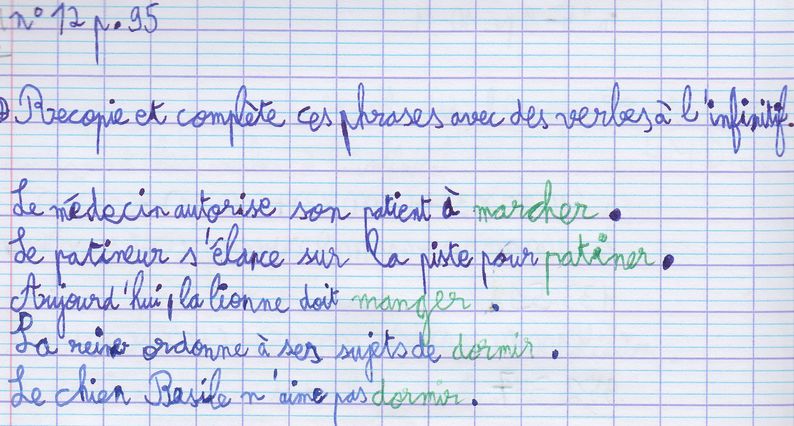 n° 12 p. 95
Recopie et complète ces phrases avec des verbes à l'infinitif.
Le médecin autorise son patient à marcher.
Le patineur s'élance sur la piste pour patiner.
Aujourd'hui, la lionne doit manger.
La reine ordonne à ses sujets de dormir.
Le chien Basile n'aime pas dormir.